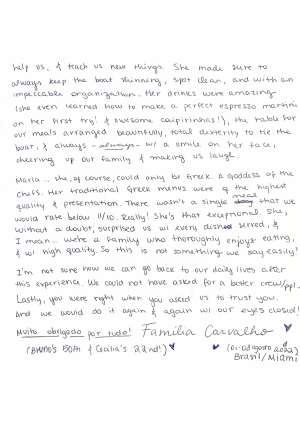 help us, & teach us new things. She made sure to
always keep the boat shinning, spot clean, and with an
impeccable organization. Her drinks were amazing
(she even learned how to make a perfect espresso martini
on her first try! & awesome caipirinhas!), the table for
our meals arranged beautifully, total dexterity to tie the
boat, & always - always - w/ a smile on her face,
cheering up our family & making us laugh.
Maria... she, of course, could only be Greek. A Goddess of the
Chefs. Her traditional Greek menus were of the highest
quality & presentation. There wasn't a single meal that we
would rate below 11/10. Really! She's that exceptional. She,
without a doubt, surprised us w/ every dish served, &
I mean... we're a family who thoroughly enjoys eating,
& w/ high quality. So this is not something we say easily!
I'm not sure how we can go back to our daily lives after
this experience. We could not have asked for a better crew/ppl.
Lastly, you were right when you asked us to trust you.
And we would do it again & again w/ our eyes closed!
Muito obrigado por tudo! Familia Carvalho
(Bruno's 50th & Giulia's 22nd!)
Brasil/Miami